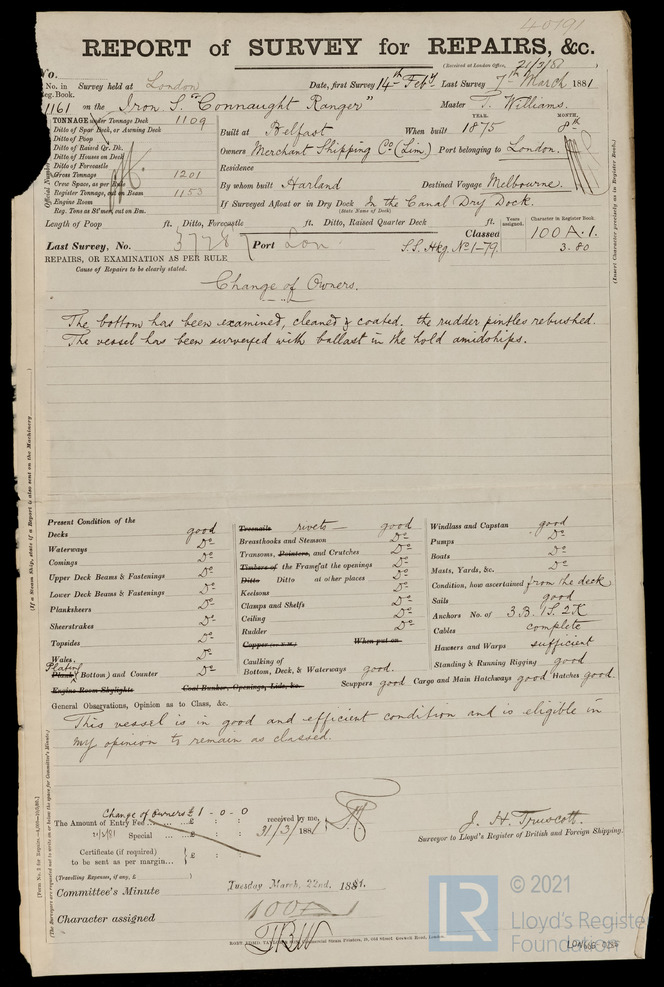 40191
REPORT of SURVEY for REPAIRS, &c.
(Received at London Office, 21/3/81 )
No.
No. in Survey held at London Date, first Survey 14th Feby Last Survey 7th March 1881
Reg. Book.
1161 on the Iron S. "Connaught Ranger" Master T. Williams.
TONNAGE under Tonnage Deck 1109
Ditto of Spar Deck, or Awning Deck
Ditto of Poop
Ditto of Raised Qr. Dk.
Ditto of Houses on Deck
Ditto of Forecastle
Gross Tonnage 1201
Crew Space, as per Rule
Register Tonnage, cut on Beam 1153
Engine Room
Reg. Tons as St'mer, cut on Bm.
Official Number
YEAR. MONTH.
Built at Belfast When built 1875 8th
Owners Merchant Shipping Co (Lim) Port belonging to London.
Residence
By whom built Harland Destined Voyage Melbourne.
If Surveyed Afloat or in Dry Dock In the Canal Dry Dock.
(State Name of Dock)
Length of Poop ft. Ditto, Forecastle ft. Ditto, Raised Quarter Deck ft.
Years assigned. Character in Register Book.
Classed 100 A.1.
Last Survey, No. 37287 Port Lon S.S. Hkg. No 1-79. 3.80
REPAIRS, OR EXAMINATION AS PER RULE
Cause of Repairs to be clearly stated.
(Insert Character precisely as in Register Book.)
Change of Owners.
The bottom has been examined, cleaned & coated. the rudder pintles rebushed.
The vessel has been surveyed with ballast in the hold amidships.
(If a Steam Ship, state if a Report is also sent on the Machinery.
Present Condition of the
Decks good
Waterways Do
Comings Do
Upper Deck Beams & Fastenings Do
Lower Deck Beams & Fastenings Do
Planksheers Do
Sheerstrakes Do
Topsides Do
Wales Do
Plating
Plank (Bottom) and Counter Do
Engine Room Skylights Coal Bunker, Openings, Lids, &c.
Treenails rivets — good
Breasthooks and Stemson Do
Transoms, Pointers, and Crutches Do
Timbers of the Frame at the openings Do
Ditto Ditto at other places Do
Keelsons Do
Clamps and Shelfs Do
Ceiling Do
Rudder Do
Copper When put on
Caulking of
Bottom, Deck, & Waterways good.
Scuppers good Cargo and Main Hatchways good Hatches good.
Windlass and Capstan good
Pumps Do
Boats Do
Masts, Yards, &c. Do
Condition, how ascertained from the deck
Sails good
Anchors No. of 3 B. 1 S. 2 K
Cables complete
Hawsers and Warps sufficient
Standing & Running Rigging good
General Observations, Opinion as to Class, &c.
This vessel is in good and efficient condition and is eligible in
my opinion to remain as classed.
Change of Owners £ 1 - 0 - 0
The Amount of Entry Fee £ : : received by me,
21/3/81 Special £ : : 31/3/1881
Certificate (if required)
to be sent as per margin... } £ : :
(Travelling Expenses, if any, £ )
J. H. Truscott.
Surveyor to Lloyd's Register of British and Foreign Shipping.
Committee's Minute Tuesday March, 22nd. 1881.
Character assigned 100 A 1
(The Surveyors are requested not to write on or below the space for Committee's Minute.)
© 2021
LR Lloyd's Register
Foundation